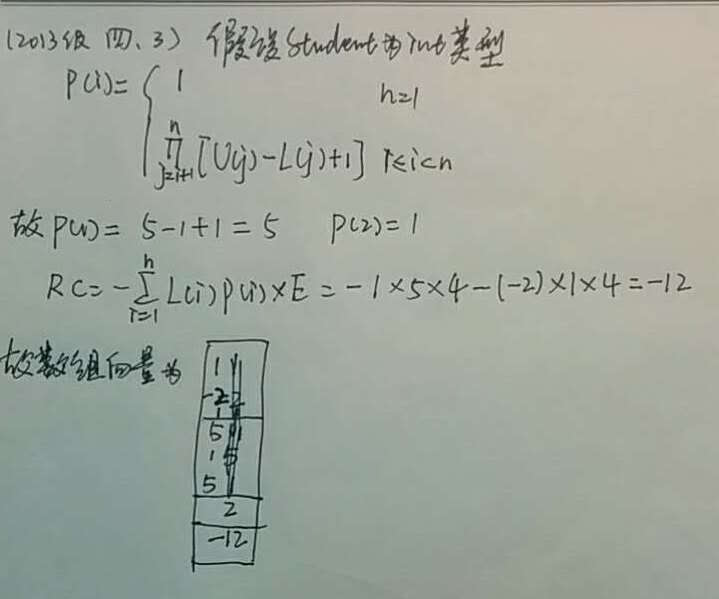 (2013级 四、3) 假设Student为int类型
P(i)= { 1 n=1
n
∏ [U(j)-L(j)+1] 1≤i<n
j=i+1
故P(1)= 5-1+1=5 P(2)=1
n
RC=-∑ L(i)P(i)×E = -1×5×4-(-2)×1×4=-12
i=1
故数组向量为
1
-2
1
5
1 5
5
2
-12